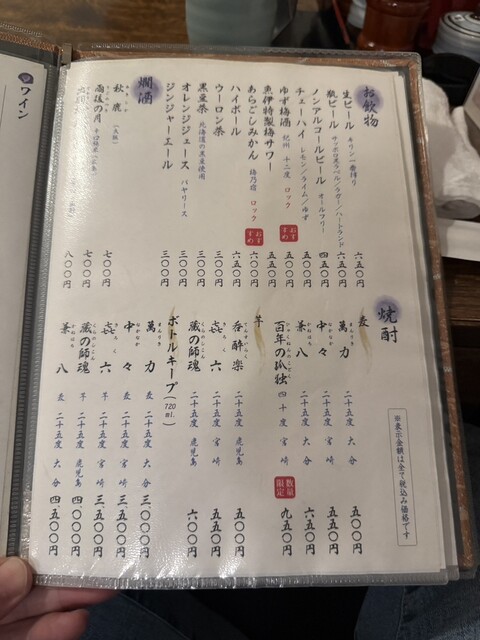 お飲物
生ビール キリン一番搾り 六五〇円
瓶ビール サッポロ黒ラベル/ラガー/ハートランド 六五〇円
ノンアルコールビール オールフリー 四五〇円
チューハイ レモン/ライム/ゆず 五〇〇円
ゆず梅酒 紀州 十二度 ロック おすすめ 五〇〇円
魚伊特製梅サワー 五五〇円
あらごしみかん 梅乃宿 ロック おすすめ 六〇〇円
ハイボール 六五〇円
ウーロン茶 三〇〇円
黒豆茶 北海道の黒豆使用 三〇〇円
オレンジジュース バヤリース 三〇〇円
ジンジャーエール 三〇〇円
燗酒
秋鹿 (大阪) 七〇〇円
雨後の月 七〇〇円
八〇〇円
焼酎
※表示金額は全て税込み価格です
麦
萬力 まんりき 二十五度 大分 五〇〇円
中々 なかなか 二十五度 宮崎 五五〇円
兼八 かねはち 二十五度 大分 六五〇円
百年の孤独 ひゃくねんのこどく 四十度 宮崎 数量限定 九五〇円
芋
呑酔楽 てんすいらく 二十五度 鹿児島 五〇〇円
㐂六 きろく 二十五度 宮崎 五五〇円
蔵の師魂 くらのしこん 二十五度 鹿児島 六〇〇円
ボトルキープ(720ml.)
萬力 まんりき 麦 二十五度 大分 三〇〇〇円
中々 なかなか 麦 二十五度 宮崎 三五〇〇円
㐂六 きろく 芋 二十五度 宮崎 三五〇〇円
蔵の師魂 くらのしこん 芋 二十五度 鹿児島 四〇〇〇円
兼八 かねはち 麦 二十五度 大分 四五〇〇円
ワイン